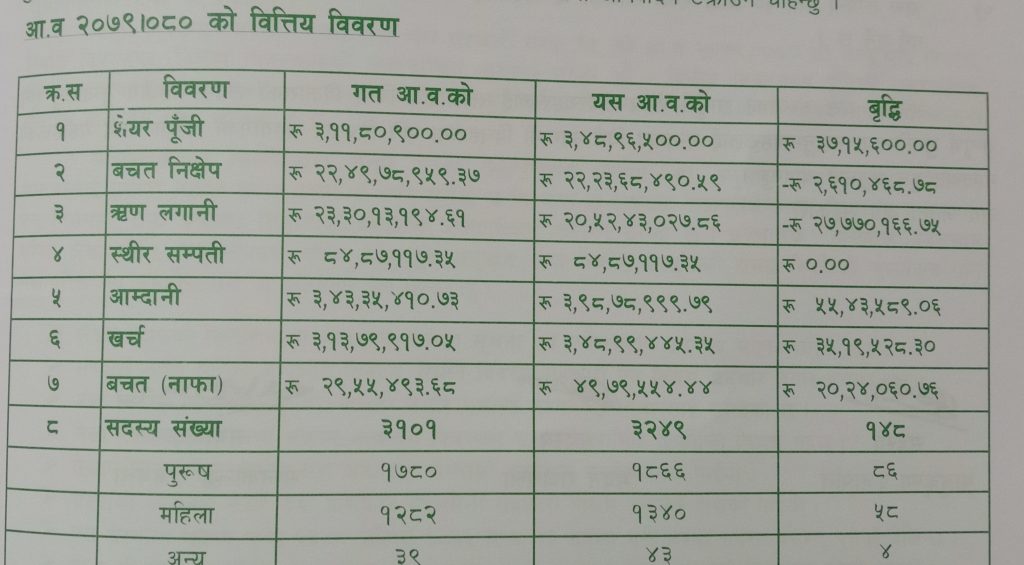 आ.व २०७९।०८० को वित्तिय विवरण
क्र.स विवरण गत आ.व.को यस आ.व.को बृद्धि
१ शेयर पूँजी रू ३,११,८०,९००.०० रू ३,४८,९६,५००.०० रू ३७,१५,६००.००
२ बचत निक्षेप रू २२,४९,७८,९५९.३७ रू २२,२३,६८,४९०.५९ -रू २,६१०,४६८.७८
३ ऋण लगानी रू २३,३०,१३,१९४.६१ रू २०,५२,४३,०२७.८६ -रू २७,७७०,१६६.७५
४ स्थीर सम्पती रू ८४,८७,११७.३५ रू ८४,८७,११७.३५ रू ०.००
५ आम्दानी रू ३,४३,३५,४१०.७३ रू ३,९८,७८,९९९.७९ रू ५५,४३,५८९.०६
६ खर्च रू ३,१३,७९,९१७.०५ रू ३,४८,९९,४४५.३५ रू ३५,१९,५२८.३०
७ बचत (नाफा) रू २९,५५,४९३.६८ रू ४९,७९,५५४.४४ रू २०,२४,०६०.७६
८ सदस्य संख्या ३१०१ ३२४९ १४८
पुरूष १७८० १८६६ ८६
महिला १२८२ १३४० ५८
अन्य ३९ ४३ ४